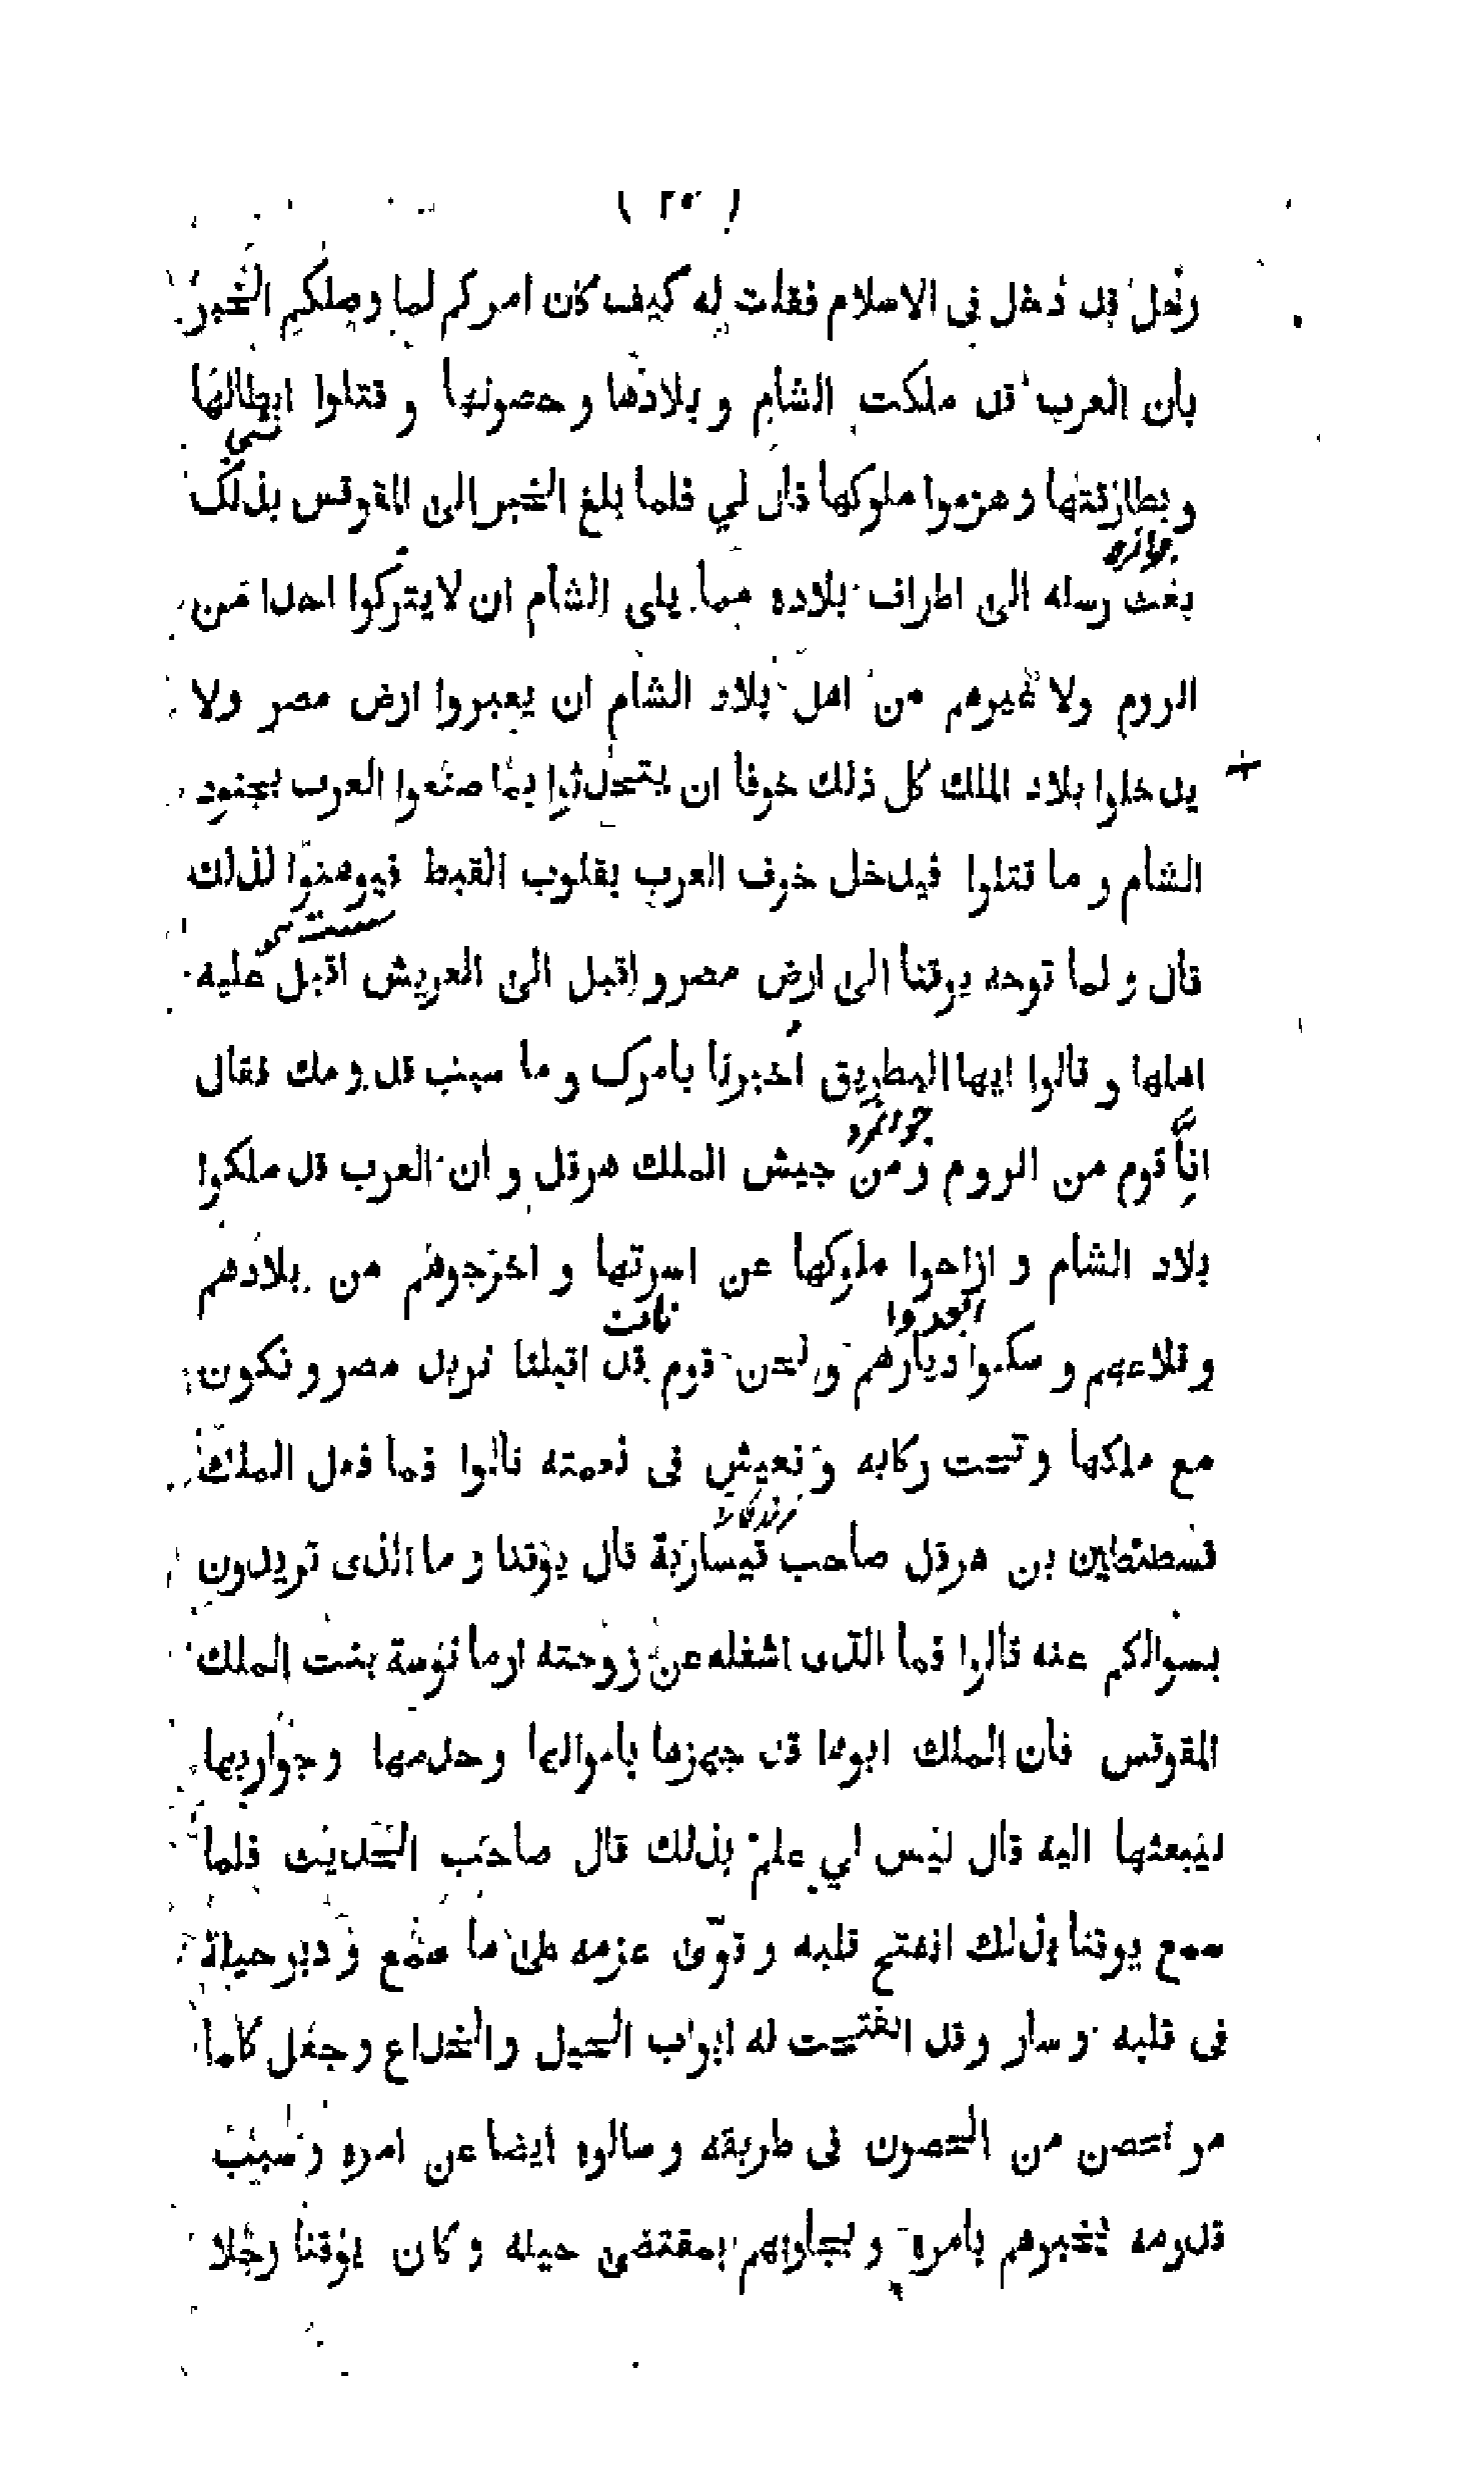 ( ٢٥ )
رجل قد دخل في الاسلام فقلت له كيف كان امركم لما وصلكم الخبر
بان العرب قد ملكت الشام و بلادها و حصونها و قتلوا ابطالها
و بطارقتها و هزموا ملوكها قال لي فلما بلغ الخبر الى المقوقس بذلك
بعث رسله الى اطراف بلاده مما يلي الشام ان لا يتركوا احدا من
الروم ولا غيرهم من اهل بلاد الشام ان يعبروا ارض مصر ولا
يدخلوا بلاد الملك كل ذلك خوفا ان يتحدثوا بما صنعوا العرب بجنود
الشام و ما قتلوا فيدخل خوف العرب بقلوب القبط فيوهنوا لذلك
قال و لما توجه يوقنا الى ارض مصر و اقبل الى العريش اقبل عليه
اهلها و قالوا ايها البطريق اخبرنا بامرك و ما سبب قدومك فقال
انا قوم من الروم ومن جيش الملك هرقل و ان العرب قد ملكوا
بلاد الشام و ازاحوا ملوكها عن اسرتها و اخرجوهم من بلادهم
و قلاعهم و سكنوا ديارهم و نحن قوم قد اقبلنا نريد مصر و نكون
مع ملكها و تحت ركابه و نعيش في نعمته قالوا فما فعل الملك
قسطنطين بن هرقل صاحب قيسارية قال يوقنا و ما الذى تريدون
بسوالكم عنه قالوا فما الذى اشغله عن زوجته ارمانوسة بنت الملك
المقوقس فان الملك ابوها قد جهزها باموالها و خدمها و جواريها
ليبعثها اليه قال ليس لي علم بذلك قال صاحب الحديث فلما
سمع يوقنا بذلك انفتح قلبه و قوّى عزمه على ما سمع و دبر حيلة
في قلبه و سار و قد انفتحت له ابواب الحيل و الخداع و جعل كلما
مر بحصن من الحصون في طريقه و سالوه ايضا عن امره و سبب
قدومه يخبرهم بامره و يجاوبهم بمقتضى حيله و كان يوقنا رجلا